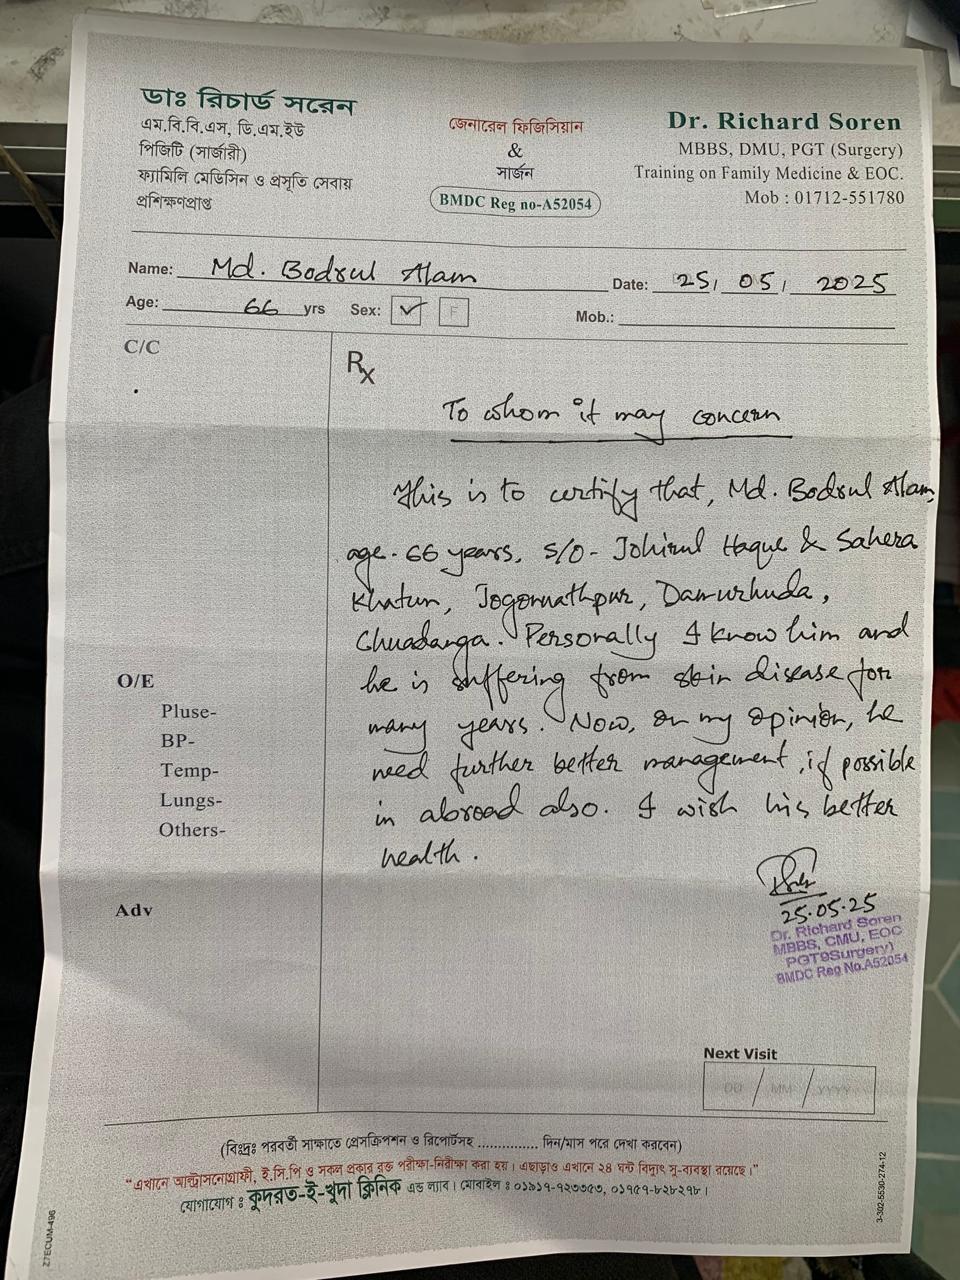 ডাঃ রিচার্ড সরেন
এম.বি.বি.এস, ডি.এম.ইউ
পিজিটি (সার্জারী)
ফ্যামিলি মেডিসিন ও প্রসূতি সেবায়
প্রশিক্ষণপ্রাপ্ত
জেনারেল ফিজিসিয়ান
&
সার্জন
BMDC Reg no-A52054
Dr. Richard Soren
MBBS, DMU, PGT (Surgery)
Training on Family Medicine & EOC.
Mob : 01712-551780
Name: Md. Bodrul Alam
Date: 25/ 05/ 2025
Age: 66 yrs Sex: ✓ F
Mob.:
C/C
Rx
To whom it may concern
This is to certify that, Md. Bodrul Alam,
age- 66 years, S/O- Johirul Haque & Sahera
Khatun, Jogonnathpur, Damurhuda,
Chuadanga. Personally I know him and
he is suffering from skin disease for
many years. Now, on my opinion, he
need further better management, if possible
in abroad also. I wish his better
health.
O/E
Pluse-
BP-
Temp-
Lungs-
Others-
Adv
25.05.25
Dr. Richard Soren
MBBS, CMU, EOC
PGT9Surgery)
BMDC Reg No.A52054
Next Visit
DD / MM / YYYY
(বিঃদ্রঃ পরবর্তী সাক্ষাতে প্রেসক্রিপশন ও রিপোর্টসহ .............. দিন/মাস পরে দেখা করবেন)
"এখানে আল্ট্রাসনোগ্রাফী, ই.সি.জি ও সকল প্রকার রক্ত পরীক্ষা-নিরীক্ষা করা হয়। এছাড়াও এখানে ২৪ ঘন্টা বিদ্যুৎ সু-ব্যবস্থা রয়েছে।"
যোগাযোগ : কুদরত-ই-খুদা ক্লিনিক এন্ড ল্যাব। মোবাইল :
27ECUM-496
3-302-5530-274-12